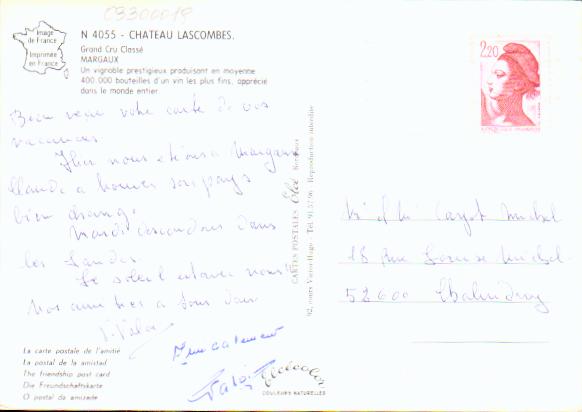 03300019
Image
de France
Imprimée
en France
N 4055 - CHATEAU LASCOMBES.
Grand Cru Classé
MARGAUX
Un vignoble prestigieux produisant en moyenne
400.000 bouteilles d'un vin les plus fins, apprécié
dans le monde entier.
Bien reçu votre carte de vos
vacances
Hier nous étions à Margaux
Claude a trouvé son pays
bien changé.
Mardi descendrons dans
les Landes.
Le soleil est avec nous
Nos amitiés à tous deux
La carte postale de l'amitié
La postal de la amistad
The friendship post card
Die Freundschaftskarte
O postal da amizade
CARTES POSTALES Elcé Bordeaux
92, cours Victor-Hugo - Tél. 91.57.96 - Reproduction interdite
Elcécolor
COULEURS NATURELLES
2,20
Mr et Me Cayot Michel
18 Rue Louise Michel
52600 Chalindrey